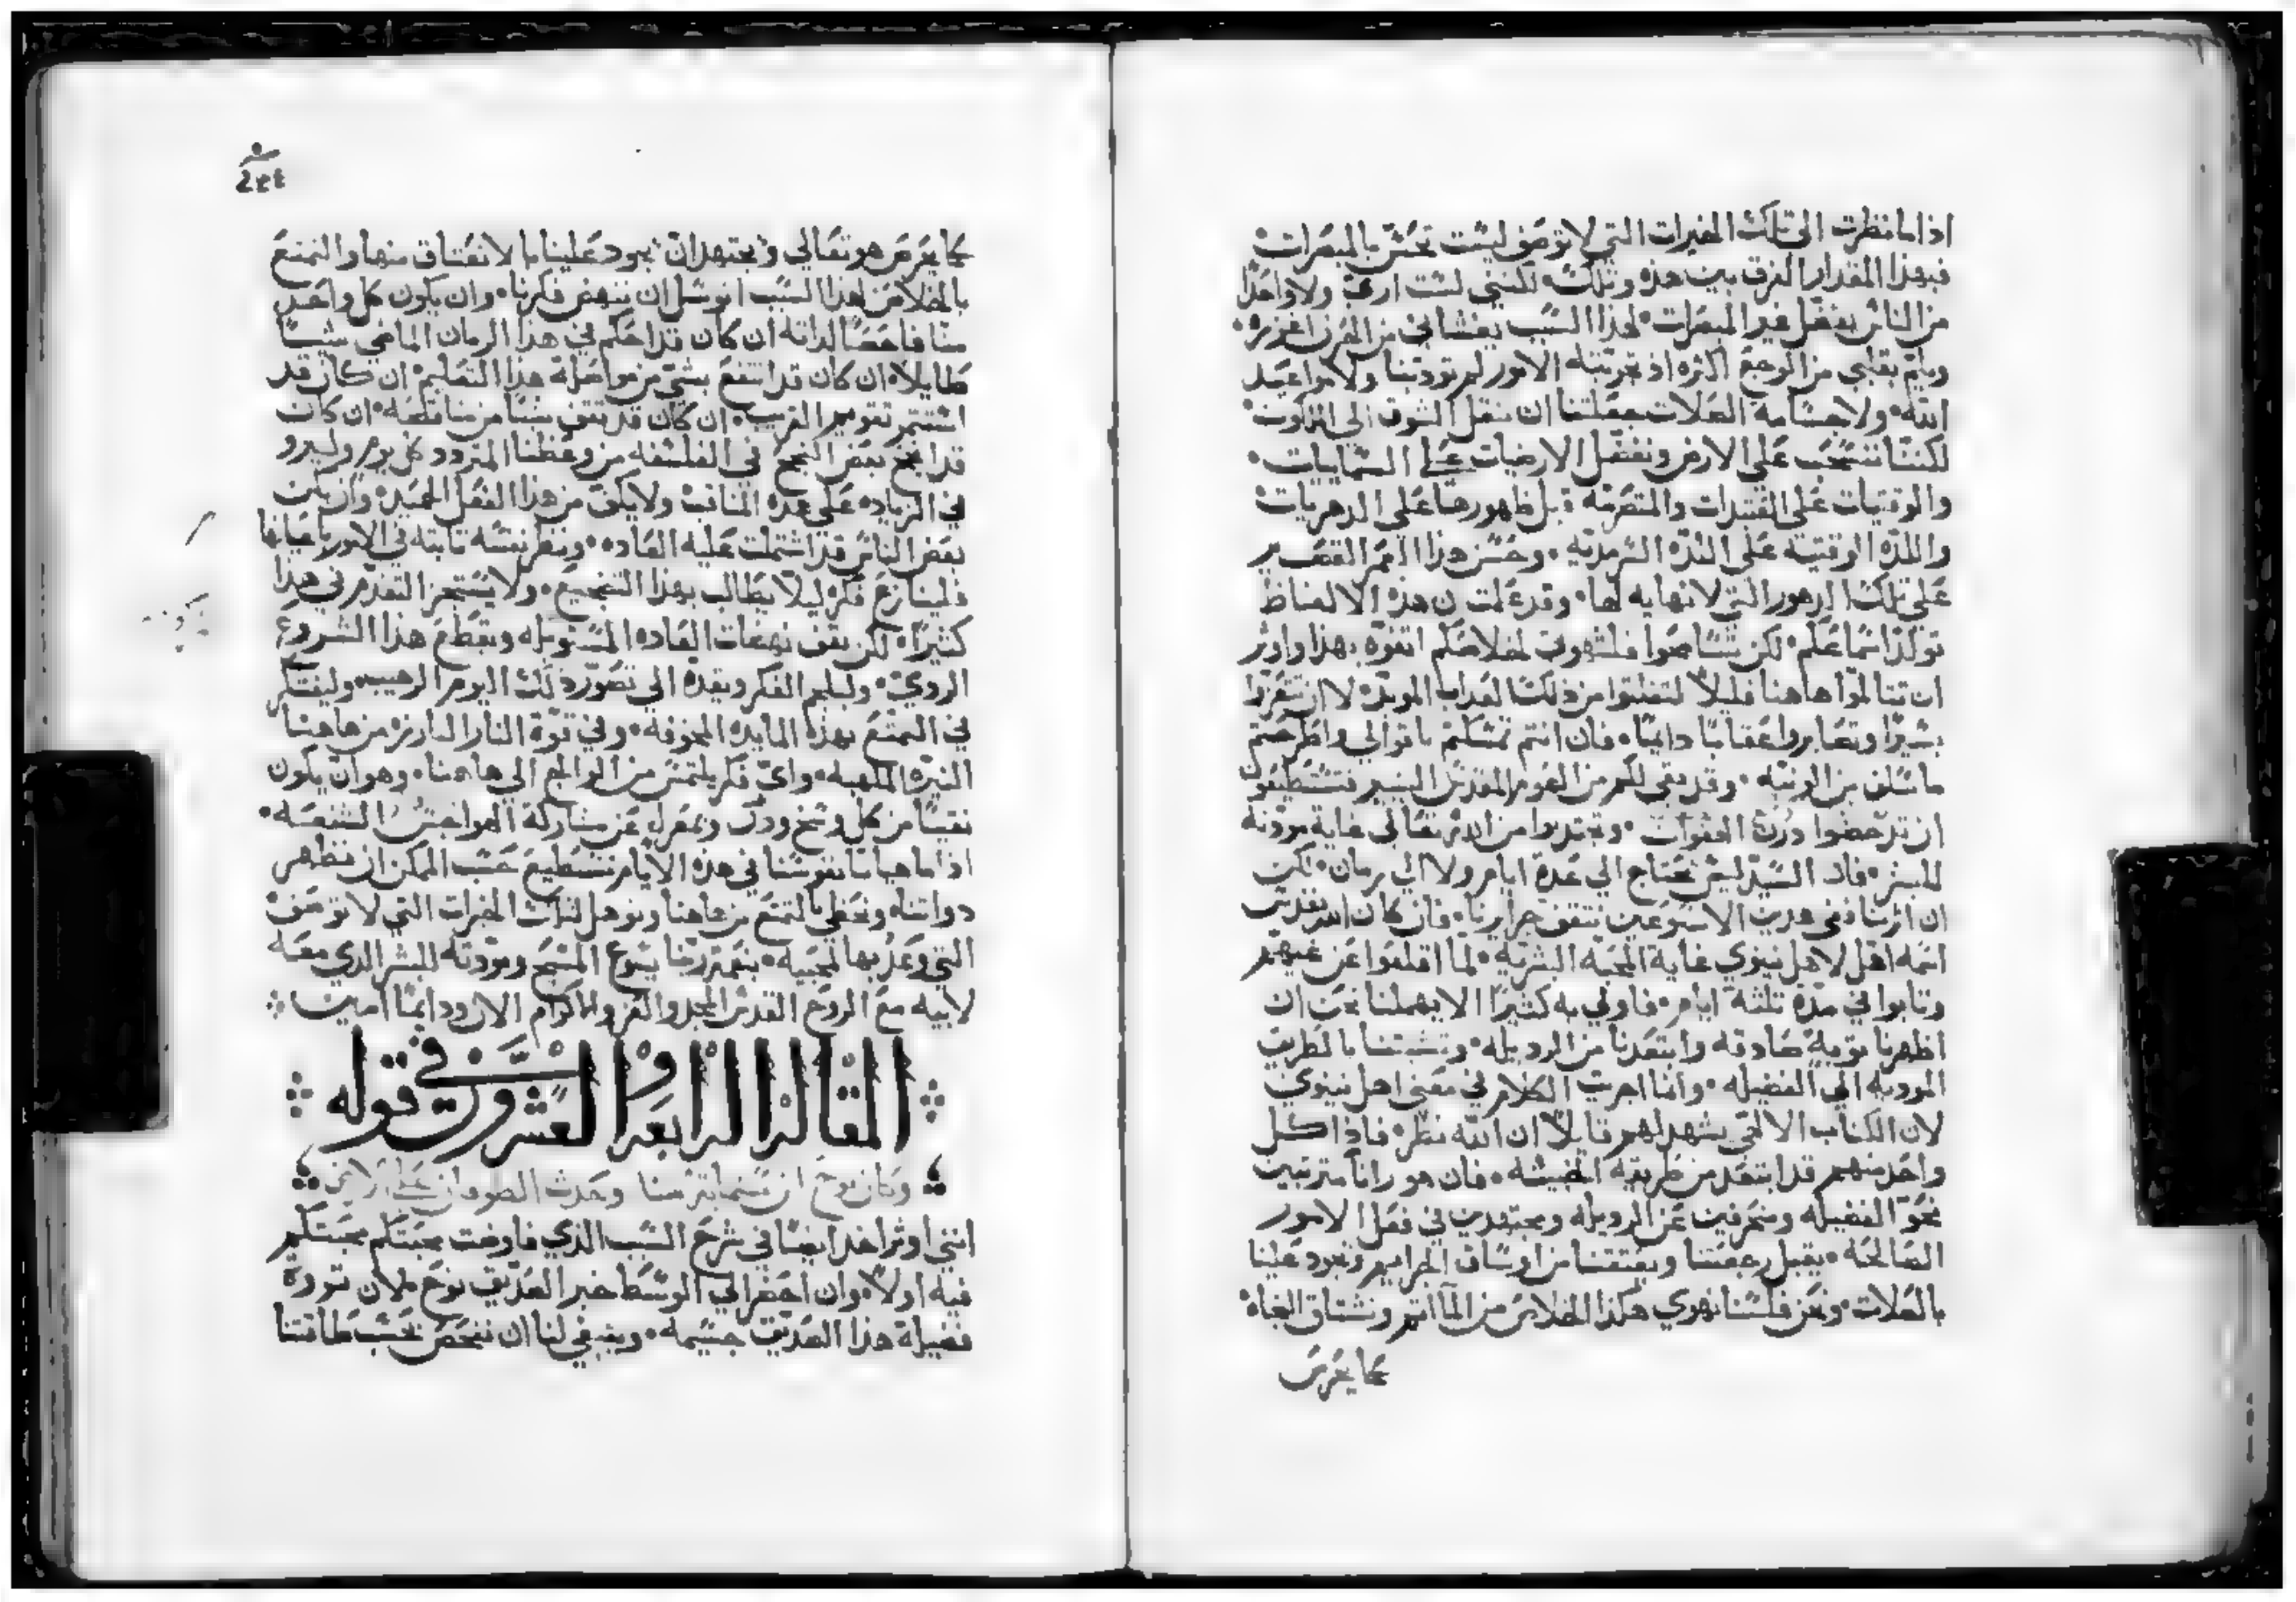 اذا ما نظرت الى تلك الخيرات التي لا توصف ليست تحس بالمبصرات
فبهذا المقدار الفرق بين هذه وتلك لكنني لست اري ولا واحدًا
من الناس يفضل غير المبصرات لهذا السبب يغشاني من الحزن اغزره
ويلم بقلبي من الوجع اكثره اذ تجربتنا الامور لم تودبنا ولا مواعيد
الله ولا جسامة الصلات جعلتنا ان ننقل الشوق الى
لكننا ننسحب على الارض ونفضل الارضيات على السماييات
والوقتيات على والمتصرمه قبل ظهورها على الدهريات
واللذه الوقتيه على اللذه السرمديه وحسن هذا العمر القصير
على تلك الدهور التي لا نهايه لها وقد علمت ان هذه الالفاظ
تولذ اسماعكم لكن تسامحوا فلشهوتي لخلاصكم اتفوه بهذا واوثر
ان تتالموا هاهنا قليلاً لتفلتوا من ذلك العداب الموبد لا ان
يسيرًا وتصابروا عقابًا دايمًا فان انتم تمسكتم باقوالي واطرحتم
ما سلف من الونيه وقد بقي لكم من الصوم المقدس اليسير فتستطيعون
ان ترحضوا درن الهفوات وتجتدبوا من الله تعالى غاية مودته
للبشر فان السيد ليس يحتاج الى عدة ايام ولا الى زمان لكن
ان اثرنا ففي هدين الاسبوعين نتقف جرايرنا فان كان الله تقدس
اسمه اهل لاهل نينوي غاية المحبه البشريه لما اقلعوا عن غيهم
وتابوا في مدة تلثة ايام فاولي به كثيرًا الا يهملنا نحن ان
اظهرنا توبة صادقه وابتعدنا من الرديله وتشبتنا بالطريق
الموديه الى الفضيله وانما اجريت الكلام في معنى اهل نينوي
لان الكتاب الالهي يشهد لهم قايلاً ان الله نظر فاذا كل
واحد منهم قد ابتعد من طريقه الخبيثه فان هو رانا مترتبين
نحو الفضيله ومنحرفين عن الرديله ومجتهدين في فعل الامور
الصالحه يقبل رجعتنا ويعتقنا من اوساق الجرايم ويجود علينا
بالصلات ونحن فلسنا نهوي هكذا الخلاص من المآتم ونشتاق النجاه
كما يحرص
كما يحرص هو تعالي ويجتهد ان يجود علينا بالانعتاق منها والتمتع
بالخلاص لهذا السبب اتوسل ان ننهض فكرنا وان يكون كل واحد
منا فاحصًا لداته ان كان قد احكم في هذا الزمان الماضي شيئًا
طايلا ان كان قد انتفع بشي من مواصلة هذا التعليم ان كان قد
استتمر تقويم القريب ان كان قد تقف شيئًا من مناقصه ان كان
قد انجح بعض النجح في الفلسفه من وعظنا المتردد كل يوم وليزود
في الزياده على هذه المناقب ولا يكف من هذا الفعل الحميد وان يكن
بعض الناس قد اشتملت عليه العاده وينظر نفسه تابته في الامور باعيانها
فلينازع فكره ليلا يطالب بهذا التنجيع ولا يستجز التقدم في هذا
كثيرًا لكن يقف نهضات العاده المستويله ويقطع هذا الشروع
الردي وليلجم الفكر ويقده الى تصور ذلك اليوم الرهيب وليفتكر
في التمتع بهذه المايده المخوفه وفي قوة النار البارزه من هاهنا
النيره الملهبه واي فكر يلتمس من الوالج الى هاهنا وهو ان يكون
نقيًا من كل وسخ ودرن وبمعزل عن مشاركة الهواجس الشنعه
اذا ما هيانا نفوسنا في هذه الايام نستطيع بحسب الممكن ان نطهر
دواتنا ونحظي بالتمتع من هاهنا ونوهل لتلك الخيرات التي لا توصف
التي وعد بها محبيه بنعمة ربنا يسوع المسيح ومودته للبشر الدي معه
لابيه مع الروح القدس المجد والعز والاكرام الان ودايمًا امين
المقالة الرابعه والعشرون في قوله
وكان نوح ابن ستماية سنه وحدث الطوفان على الارض
انني اوثر اخد ايضًا في شرح السبب الذي فاوضت محبتكم محبتكم
فيه اولاً وان احضر الى الوسط خبر الصديق نوح لان ثورة
فضيلة هذا الصديق جسيمه وينبغي لنا ان نفحص بحسب طاقتنا